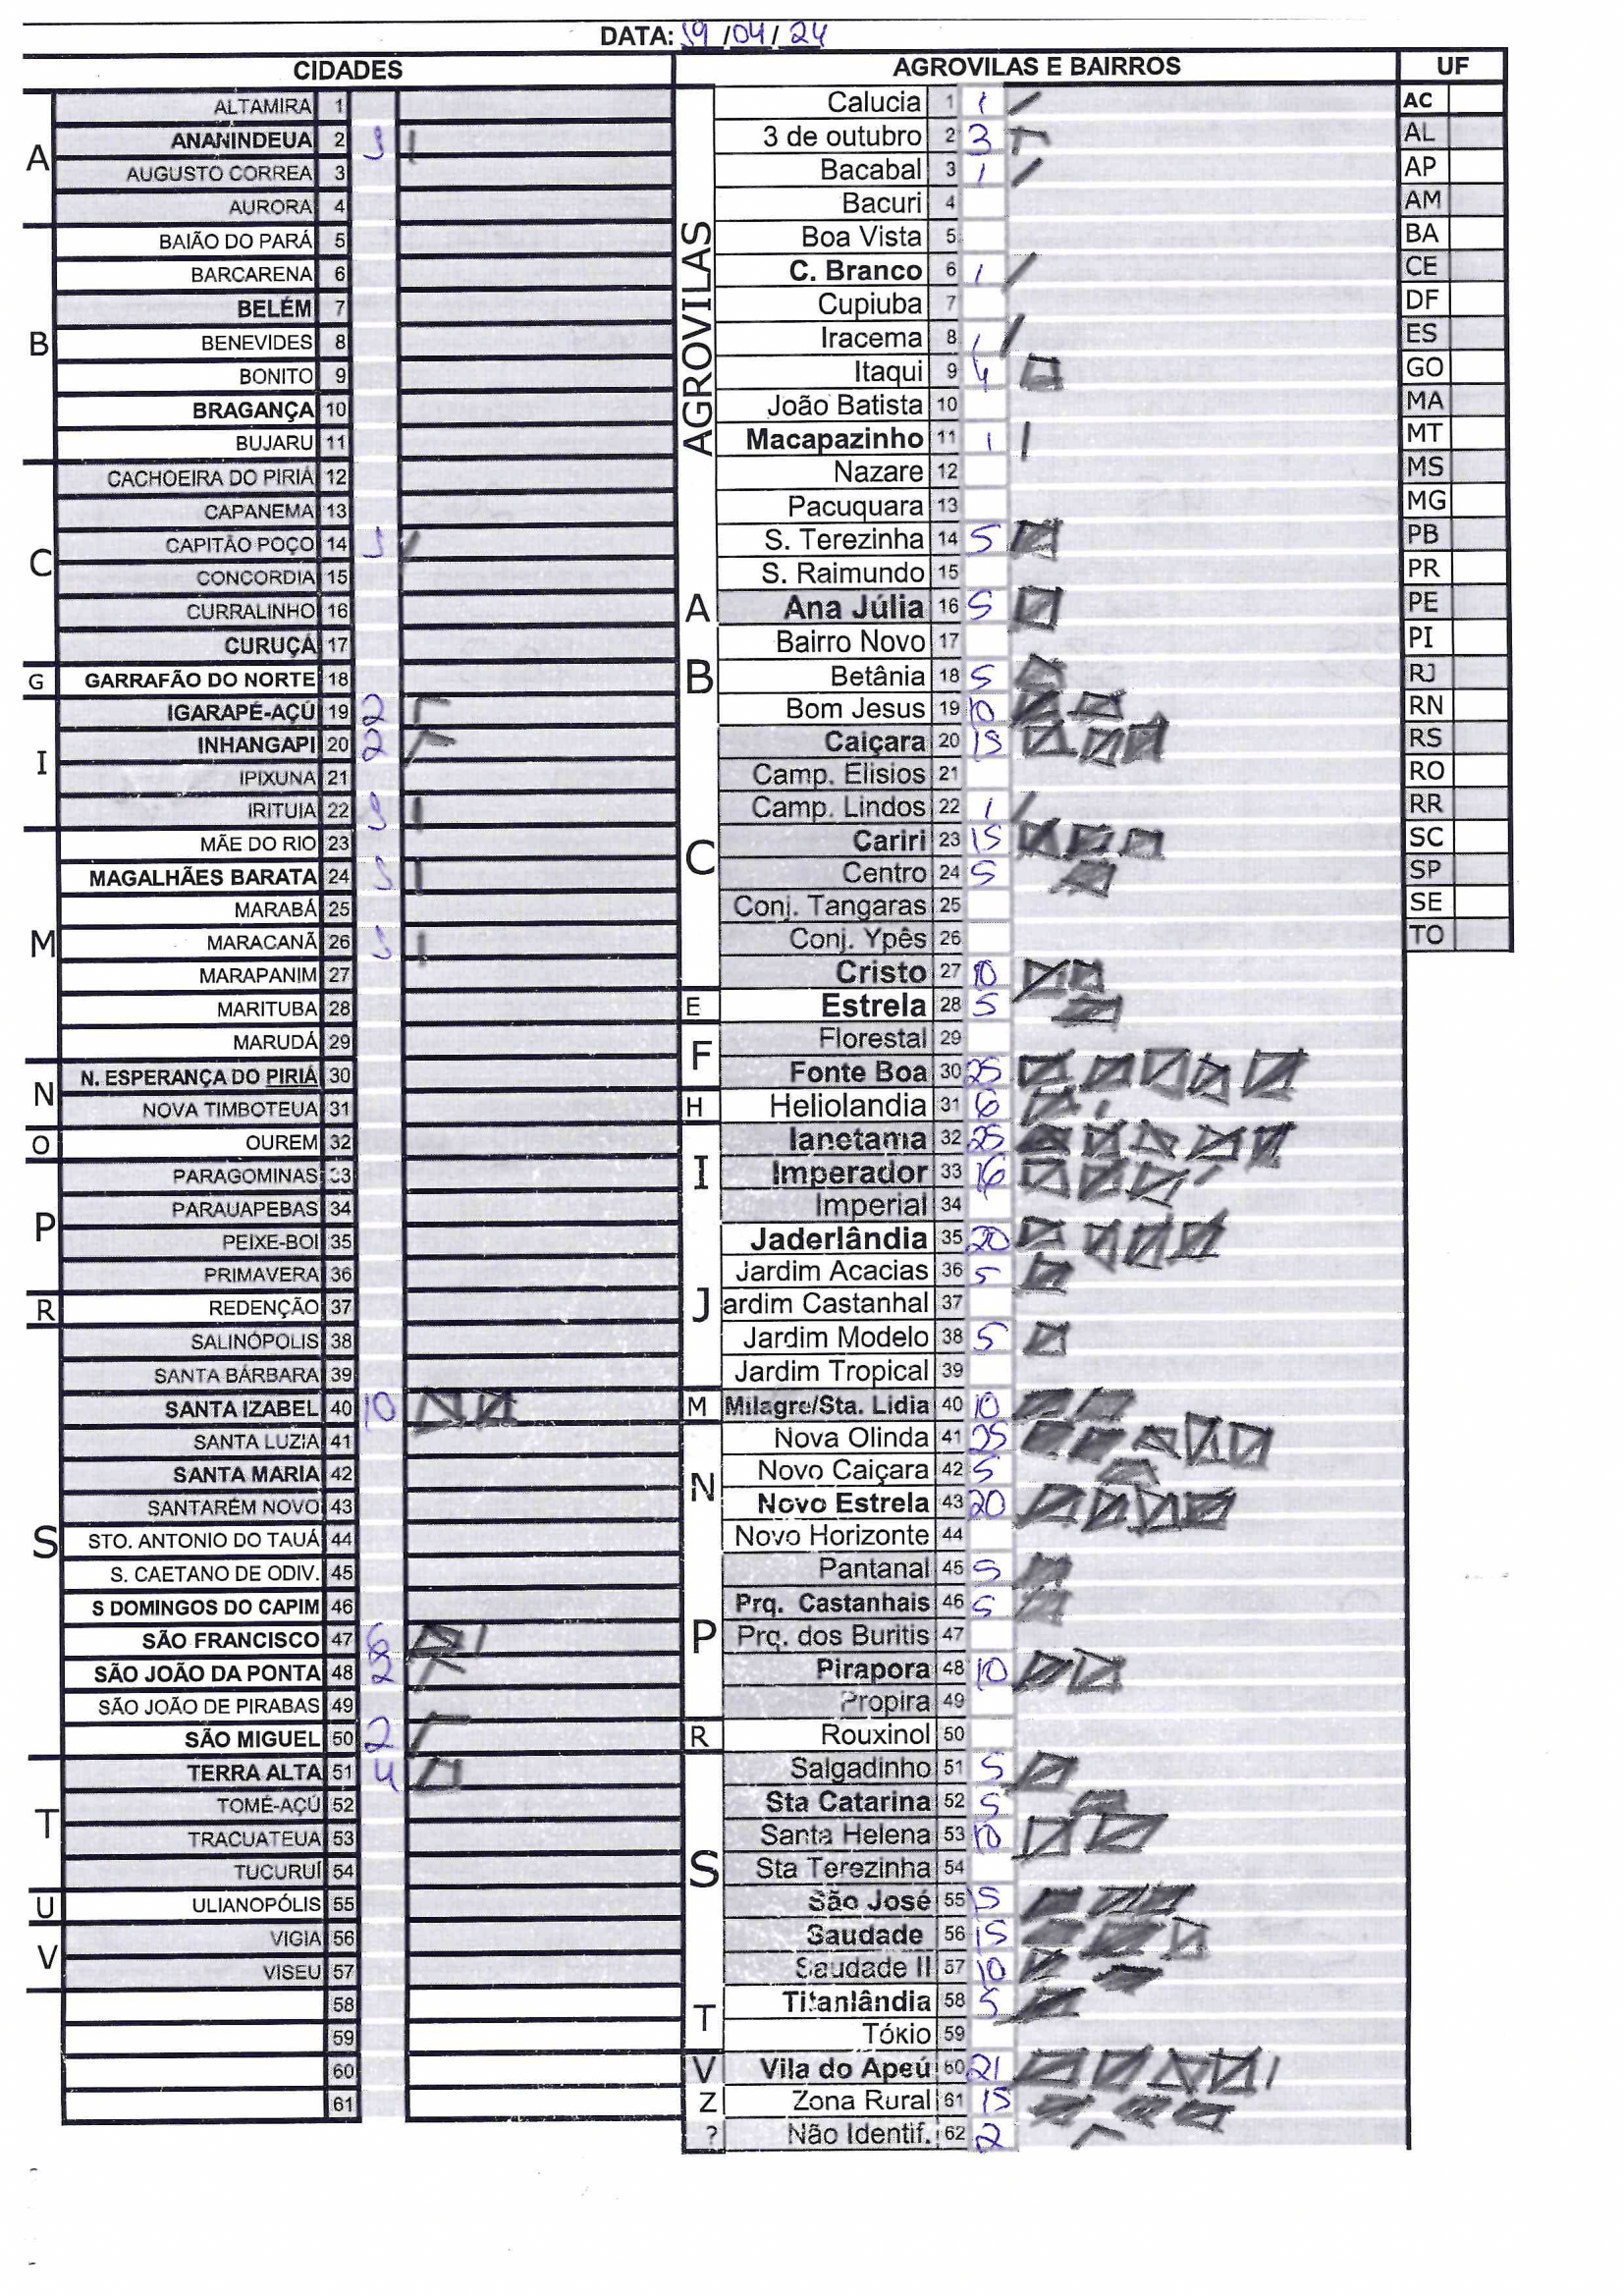 DATA: 19/04/24
CIDADES
A
ALTAMIRA 1
ANANINDEUA 2 1
AUGUSTO CORREA 3
AURORA 4
B
BAIÃO DO PARÁ 5
BARCARENA 6
BELÉM 7
BENEVIDES 8
BONITO 9
BRAGANÇA 10
BUJARU 11
C
CACHOEIRA DO PIRIÁ 12
CAPANEMA 13
CAPITÃO POÇO 14 1
CONCORDIA 15
CURRALINHO 16
CURUÇÁ 17
G
GARRAFÃO DO NORTE 18
I
IGARAPÉ-AÇÚ 19 2
INHANGAPI 20 2
IPIXUNA 21
IRITUIA 22 1
M
MÃE DO RIO 23
MAGALHÃES BARATA 24 1
MARABÁ 25
MARACANÃ 26 1
MARAPANIM 27
MARITUBA 28
MARUDÁ 29
N
N. ESPERANÇA DO PIRIÁ 30
NOVA TIMBOTEUA 31
O
OUREM 32
P
PARAGOMINAS 33
PARAUAPEBAS 34
PEIXE-BOI 35
PRIMAVERA 36
R
REDENÇÃO 37
S
SALINÓPOLIS 38
SANTA BÁRBARA 39
SANTA IZABEL 40 10
SANTA LUZIA 41
SANTA MARIA 42
SANTARÉM NOVO 43
STO. ANTONIO DO TAUÁ 44
S. CAETANO DE ODIV. 45
S DOMINGOS DO CAPIM 46
SÃO FRANCISCO 47 6
SÃO JOÃO DA PONTA 48 2
SÃO JOÃO DE PIRABAS 49
SÃO MIGUEL 50 2
T
TERRA ALTA 51 4
TOMÉ-AÇÚ 52
TRACUATEUA 53
TUCURUÍ 54
U
ULIANOPÓLIS 55
V
VIGIA 56
VISEU 57
58
59
60
61
AGROVILAS E BAIRROS
AGROVILAS
Calucia 1 1
3 de outubro 2 3
Bacabal 3 1
Bacuri 4
Boa Vista 5
C. Branco 6 1
Cupiuba 7
Iracema 8 1
Itaqui 9 4
João Batista 10
Macapazinho 11 1
Nazare 12
Pacuquara 13
S. Terezinha 14 5
S. Raimundo 15
A
Ana Júlia 16 5
B
Bairro Novo 17
Betânia 18 5
Bom Jesus 19 10
C
Caiçara 20 15
Camp. Elisios 21
Camp. Lindos 22 1
Cariri 23 15
Centro 24 5
Conj. Tangaras 25
Conj. Ypês 26
Cristo 27 10
E
Estrela 28 5
F
Florestal 29
Fonte Boa 30 25
H
Heliolandia 31 6
I
Ianetama 32 25
Imperador 33 16
Imperial 34
J
Jaderlândia 35 20
Jardim Acacias 36 5
ardim Castanhal 37
Jardim Modelo 38 5
Jardim Tropical 39
M
Milagre/Sta. Lidia 40 10
N
Nova Olinda 41 25
Novo Caiçara 42 5
Novo Estrela 43 20
Novo Horizonte 44
P
Pantanal 45 5
Prq. Castanhais 46 5
Prq. dos Buritis 47
Pirapora 48 10
Propira 49
R
Rouxinol 50
S
Salgadinho 51 5
Sta Catarina 52 5
Santa Helena 53 10
Sta Terezinha 54
São José 55 15
Saudade 56 15
Saudade II 57 10
T
Titanlândia 58 5
Tókio 59
V
Vila do Apeú 60 21
Z
Zona Rural 61 15
?
Não Identif. 62 2
UF
AC
AL
AP
AM
BA
CE
DF
ES
GO
MA
MT
MS
MG
PB
PR
PE
PI
RJ
RN
RS
RO
RR
SC
SP
SE
TO